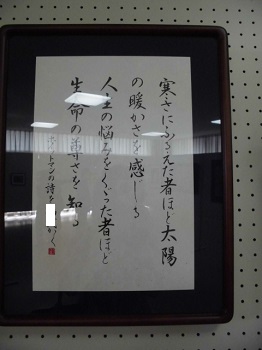 寒さにふるえた者ほど太陽
の暖かさを感じる
人生の悩みをくぐった者ほど
生命の尊さを知る
ホイットマンの詩を かく